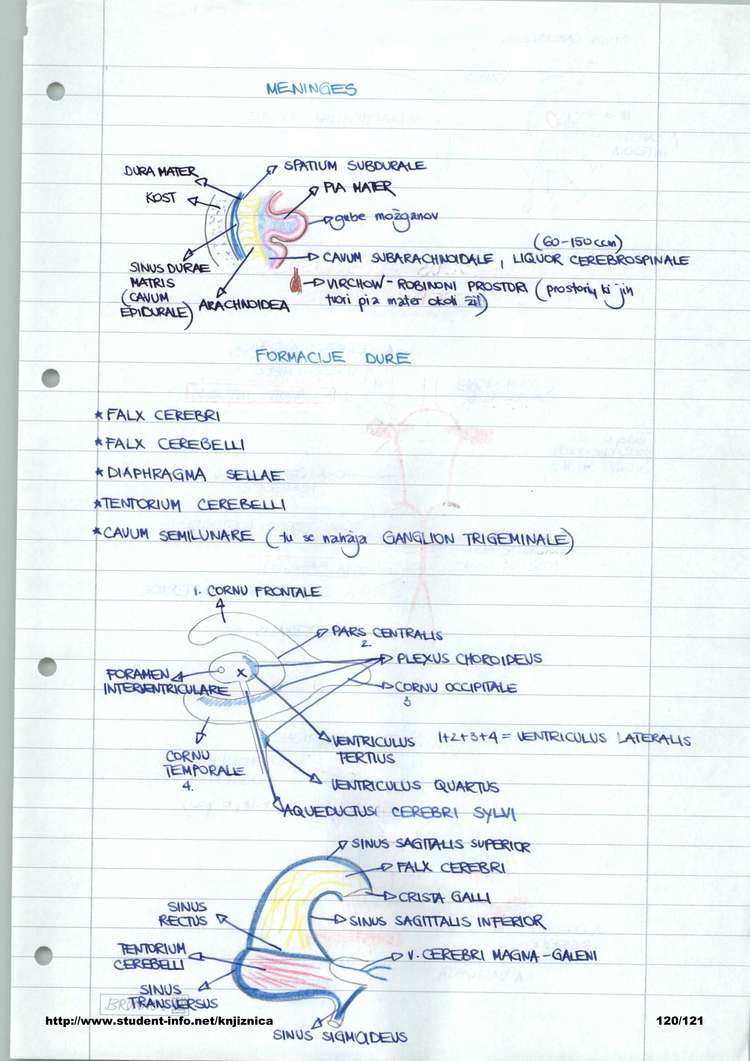 MENINGES
DURA MATER
SPATIUM SUBDURALE
KOST
PIA MATER
gube možganov
(60-150 ccm)
CAVUM SUBARACHNOIDALE, LIQUOR CEREBROSPINALE
SINUS DURAE
MATRIS
(CAVUM
EPIDURALE)
ARACHNOIDEA
VIRCHOW-ROBINONI PROSTORI (prostori, ki jih
tvori pia mater okoli žil)
FORMACIJE DURE
* FALX CEREBRI
* FALX CEREBELLI
* DIAPHRAGMA SELLAE
* TENTORIUM CEREBELLI
* CAVUM SEMILUNARE (tu se nahaja GANGLION TRIGEMINALE)
1. CORNU FRONTALE
PARS CENTRALIS
2.
PLEXUS CHOROIDEUS
FORAMEN
INTERVENTRICULARE
X
CORNU OCCIPITALE
3
VENTRICULUS
TERTIUS
1+2+3+4 = VENTRICULUS LATERALIS
CORNU
TEMPORALE
4.
VENTRICULUS QUARTUS
AQUEDUCTUS CEREBRI SYLVI
SINUS SAGITALIS SUPERIOR
FALX CEREBRI
CRISTA GALLI
SINUS
RECTUS
SINUS SAGITTALIS INFERIOR
TENTORIUM
CEREBELLI
V. CEREBRI MAGNA-GALENI
SINUS
TRANSVERSUS
http://www.student-info.net/knjiznica
120/121
SINUS SIGMOIDEUS